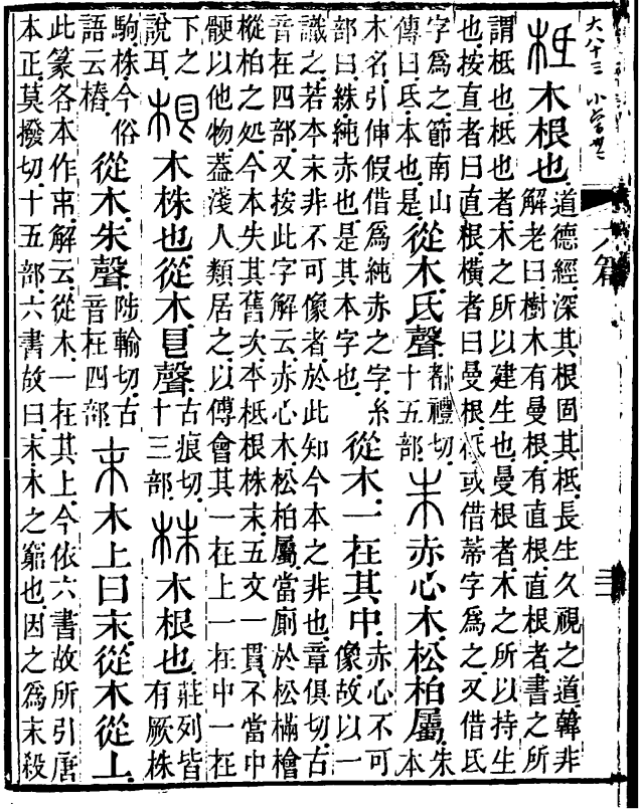 柢木根也道德經深其根固其柢長生久視之道韓非
解老曰樹木有曼根有直根直根者書之所
謂柢也柢也者木之所以建生也曼根者木之所以持生
也按直者曰直根橫者曰曼根柢或借蔕字爲之又借氐
字爲之節南山
傳曰氐本也是
從木氐聲
都禮切
十五部
朱赤心木松柏屬
朱
本
木名引伸假借爲純赤之字糸
部曰絑純赤也是其本字也
從木一在其中
赤心不可
像故以一
識之若本末非不可像者於此知今本之非也章俱切古
音在四部又按此字解云赤心木松柏屬當廁於松樠檜
樅柏之処今本失其舊次本柢根株末五文一貫不當中
骾以他物葢淺人類居之以傅會其一在上一在中一在
下之
說耳
根木株也從木㫐聲
古痕切
十三部
株木根也
莊列皆
有厥株
駒株今俗
語云樁
從木朱聲
陟輸切古
音在四部
末木上曰末從木從丄
此篆各本作末解云從木一在其上今依六書故所引唐
本正莫撥切十五部六書故曰末木之窮也因之爲末殺
六篇
三